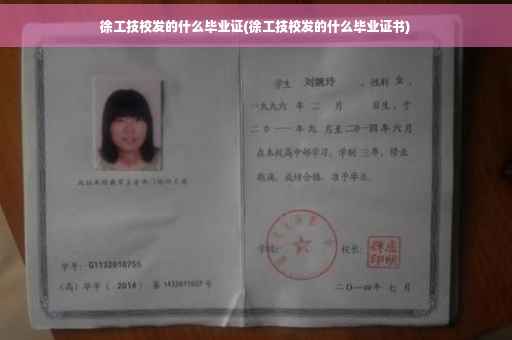 徐工技校发的什么毕业证(徐工技校发的什么毕业证书)
学生 刘婉玲 ,性别 女 ,
一九九六 年 二 月 日生,于
二〇一一年九 月至二〇一四年六月
在本校高中部学习,学制 三年,修业
期满,成绩合格,准予毕业。
学校: 校长:
二〇一四年 七 月
学号: G1132010755
(高)毕字( 2014 )第 1432011027 号